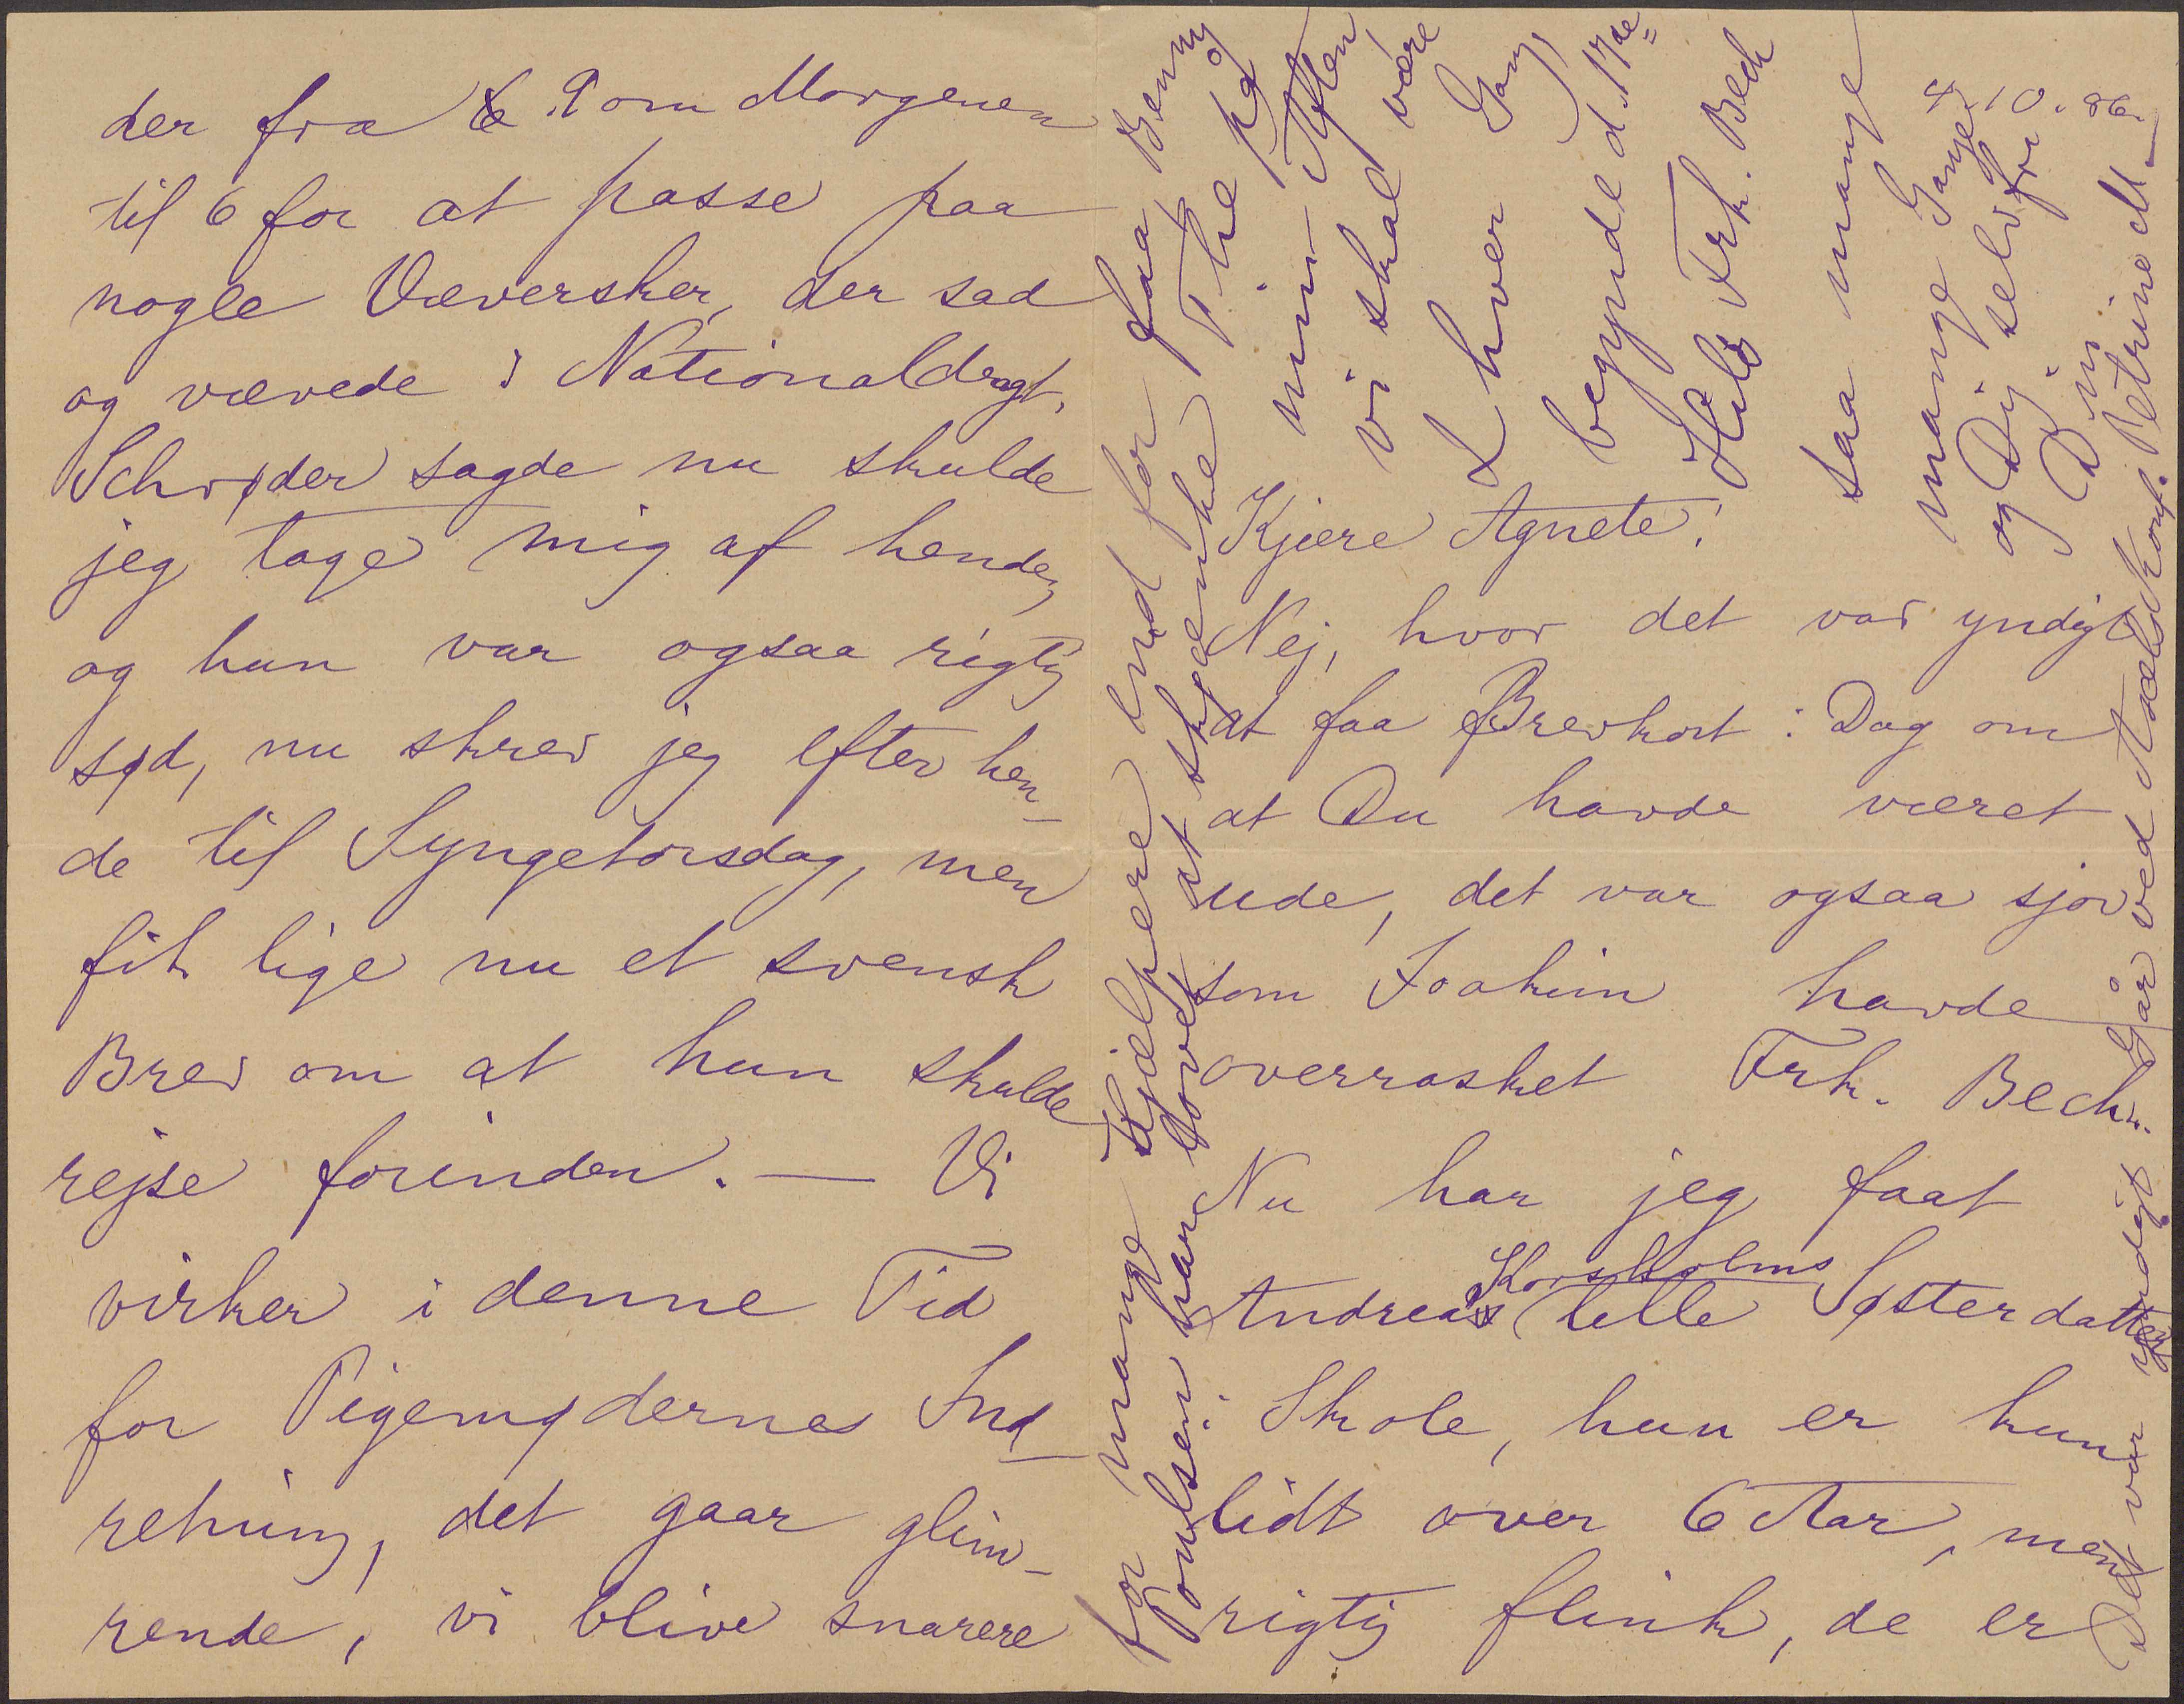 4.10.86.
Kjære Agnete!
Nej, hvor det var yndigt
at faa Brevkort i Dag om
at Du havde været
ude, det var ogsaa sjov
som Joakim havde
overrasket Frk. Bech.
Nu har jeg faat
Andreas Korsholms lille Søsterdatter
i Skole, hun er kun
lidt over 6 Aar, men
rigtig flink, de er
der fra 9 om Morgenen
til 6 for at passe paa
nogle Væversker, der sad
og vævede i Nationaldragt.
Schrøder sagde nu skulde
jeg tage mig af hende,
og hun var ogsaa rigtig
sød, nu skrev jeg efter hen-
de til Syngetorsdag, men
fik lige nu et svensk
Brev om at hun skulde
rejse forinden. — Vi
virker i denne Tid
for Pigemødernes Ind-
retning, det gaar glim-
rende, vi blive snarere
for mange Hjælpere end for faa, Benny
Poulsen har lovet at skjænke The på
min Aften
vi skal være
2 hver Gang,
begynde d. 17de
Hils Frk. Bech
saa mange
mange Gange
og Dig selv fra
Din
Petrine M.
Det var yndigt Igår ved Mælkekonf.